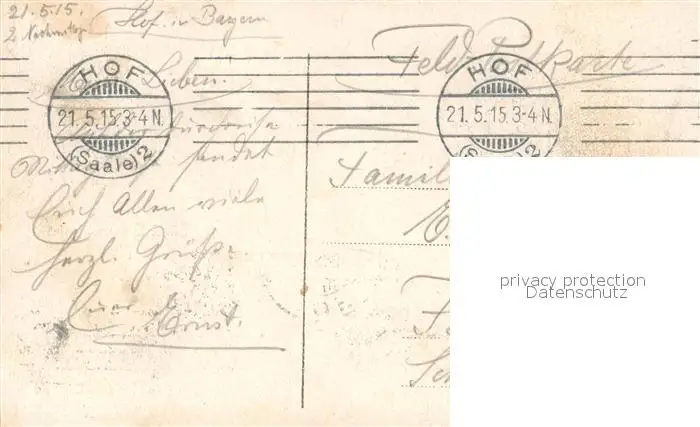 21.5.15.
2 Nachmittag
Hof. in Bayern
Feld Postkarte
M. Lieben.
HOF
21.5.15.3-4 N.
(Saale) 2
HOF
21.5.15.3-4 N.
(Saale) 2
Durchreise
sendet
Euch Allen viele
herzl. Grüße.
Euer Ernst.
Famil
privacy protection
Datenschutz